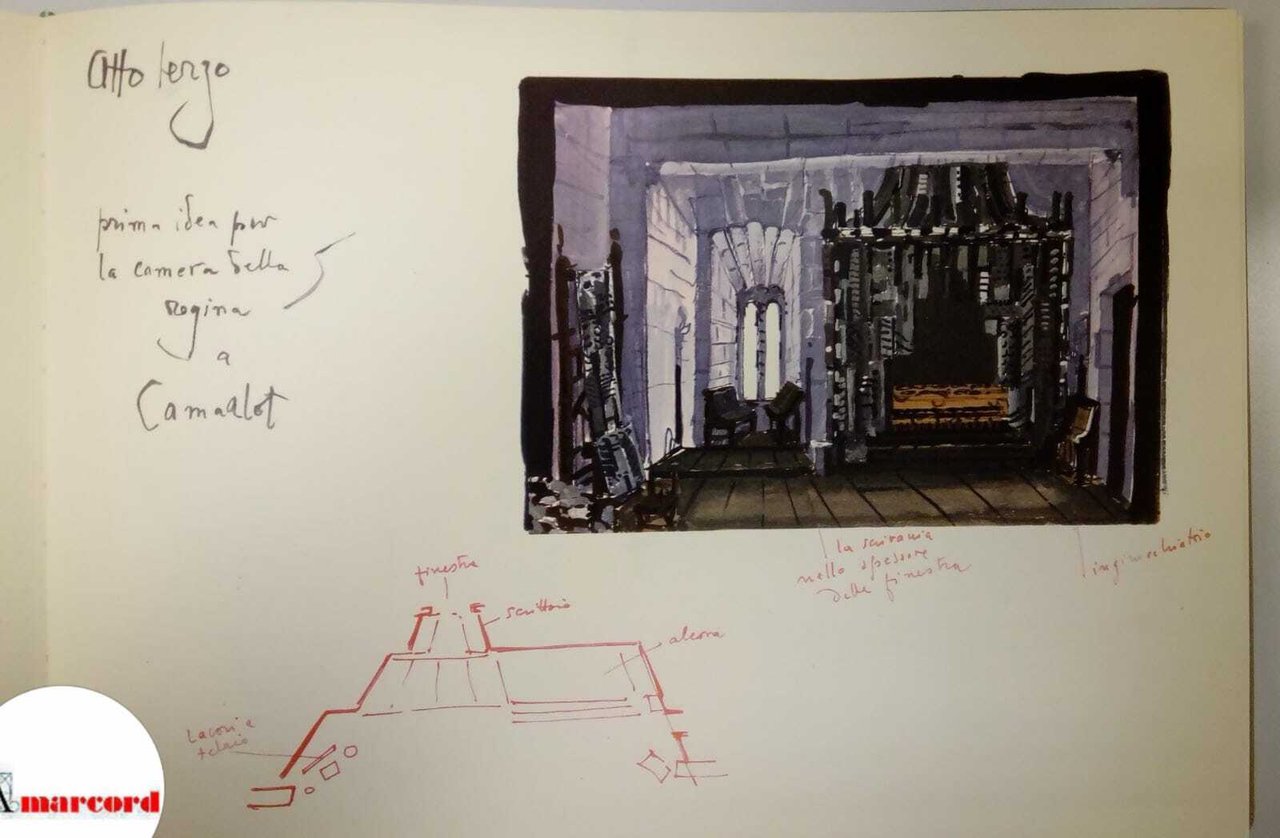 Atto terzo
prima idea per
la camera della
regina
a
Camaalot
la
nello spessore
della finestra
inginocchiatoio
finestra
scrittoio
alcova
telaio
marcord